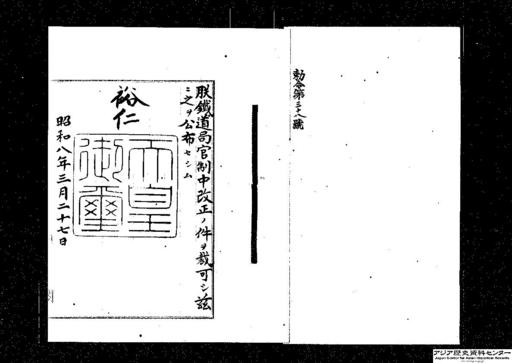 勅令第三十八號
朕鐵道局官制中改正ノ件ヲ裁可シ茲
ニ之ヲ公布セシム
裕仁
天皇
御璽
昭和八年三月二十七日
アジア歴史資料センター
Japan Center for Asian Historical Records